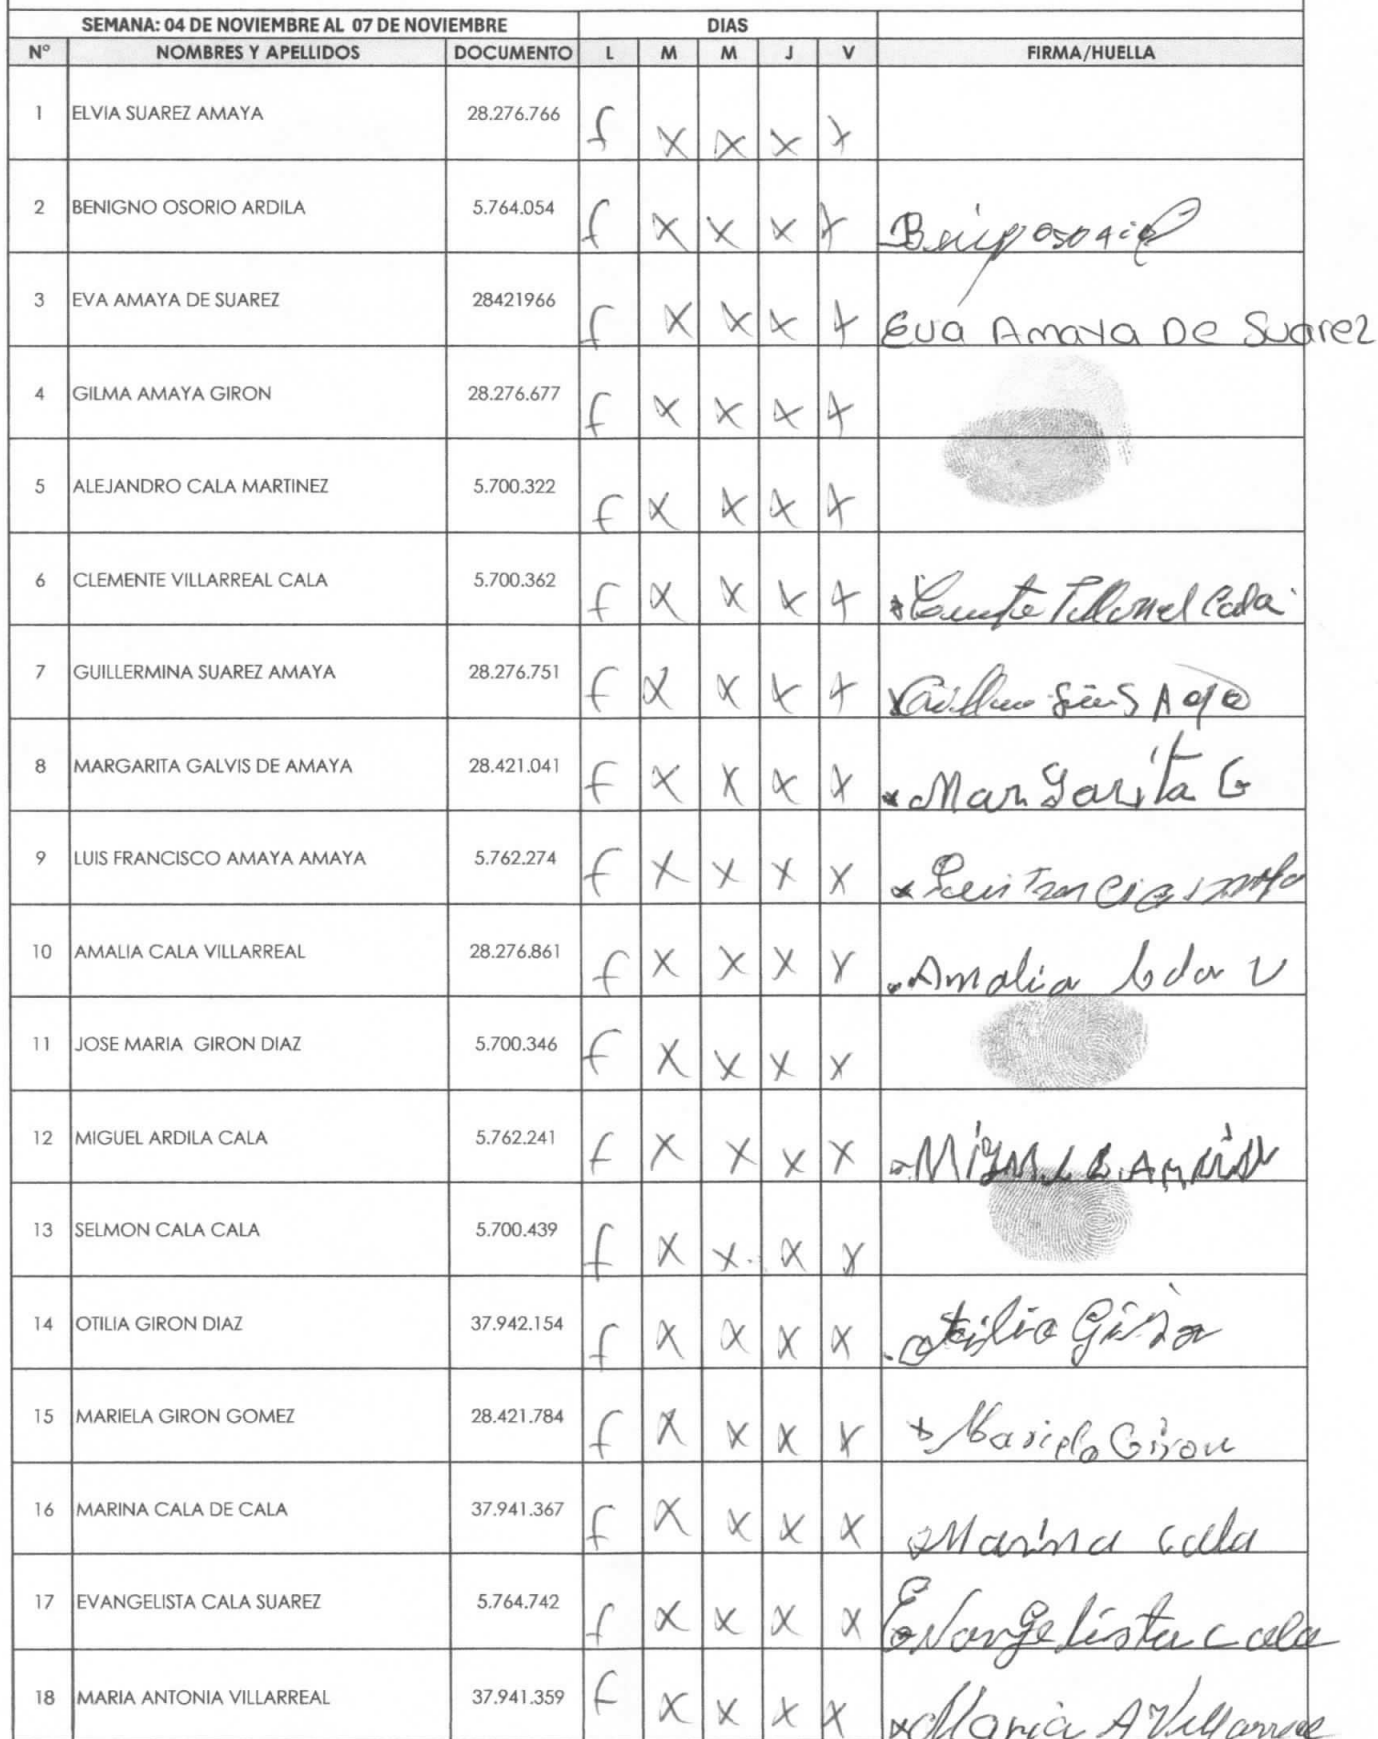 SEMANA: 04 DE NOVIEMBRE AL 07 DE NOVIEMBRE DIAS
N° NOMBRES Y APELLIDOS DOCUMENTO L M M J V FIRMA/HUELLA
1 ELVIA SUAREZ AMAYA 28.276.766 f X X X X
2 BENIGNO OSORIO ARDILA 5.764.054 f X X X X
3 EVA AMAYA DE SUAREZ 28421966 f X X X X Eva Amaya De Suarez
4 GILMA AMAYA GIRON 28.276.677 f X X X X
5 ALEJANDRO CALA MARTINEZ 5.700.322 f X X X X
6 CLEMENTE VILLARREAL CALA 5.700.362 f X X X X Cala
7 GUILLERMINA SUAREZ AMAYA 28.276.751 f X X X X
8 MARGARITA GALVIS DE AMAYA 28.421.041 f X X X X x Margarita G
9 LUIS FRANCISCO AMAYA AMAYA 5.762.274 f X X X X
10 AMALIA CALA VILLARREAL 28.276.861 f X X X X Amalia Cala V
11 JOSE MARIA GIRON DIAZ 5.700.346 f X X X X
12 MIGUEL ARDILA CALA 5.762.241 f X X X X
13 SELMON CALA CALA 5.700.439 f X X. X X
14 OTILIA GIRON DIAZ 37.942.154 f X X X X Otilia Giron
15 MARIELA GIRON GOMEZ 28.421.784 f X X X X x Mariela Giron
16 MARINA CALA DE CALA 37.941.367 f X X X X Marina cala
17 EVANGELISTA CALA SUAREZ 5.764.742 f X X X X Evangelista cala
18 MARIA ANTONIA VILLARREAL 37.941.359 f X X X X x Maria A Villarreal